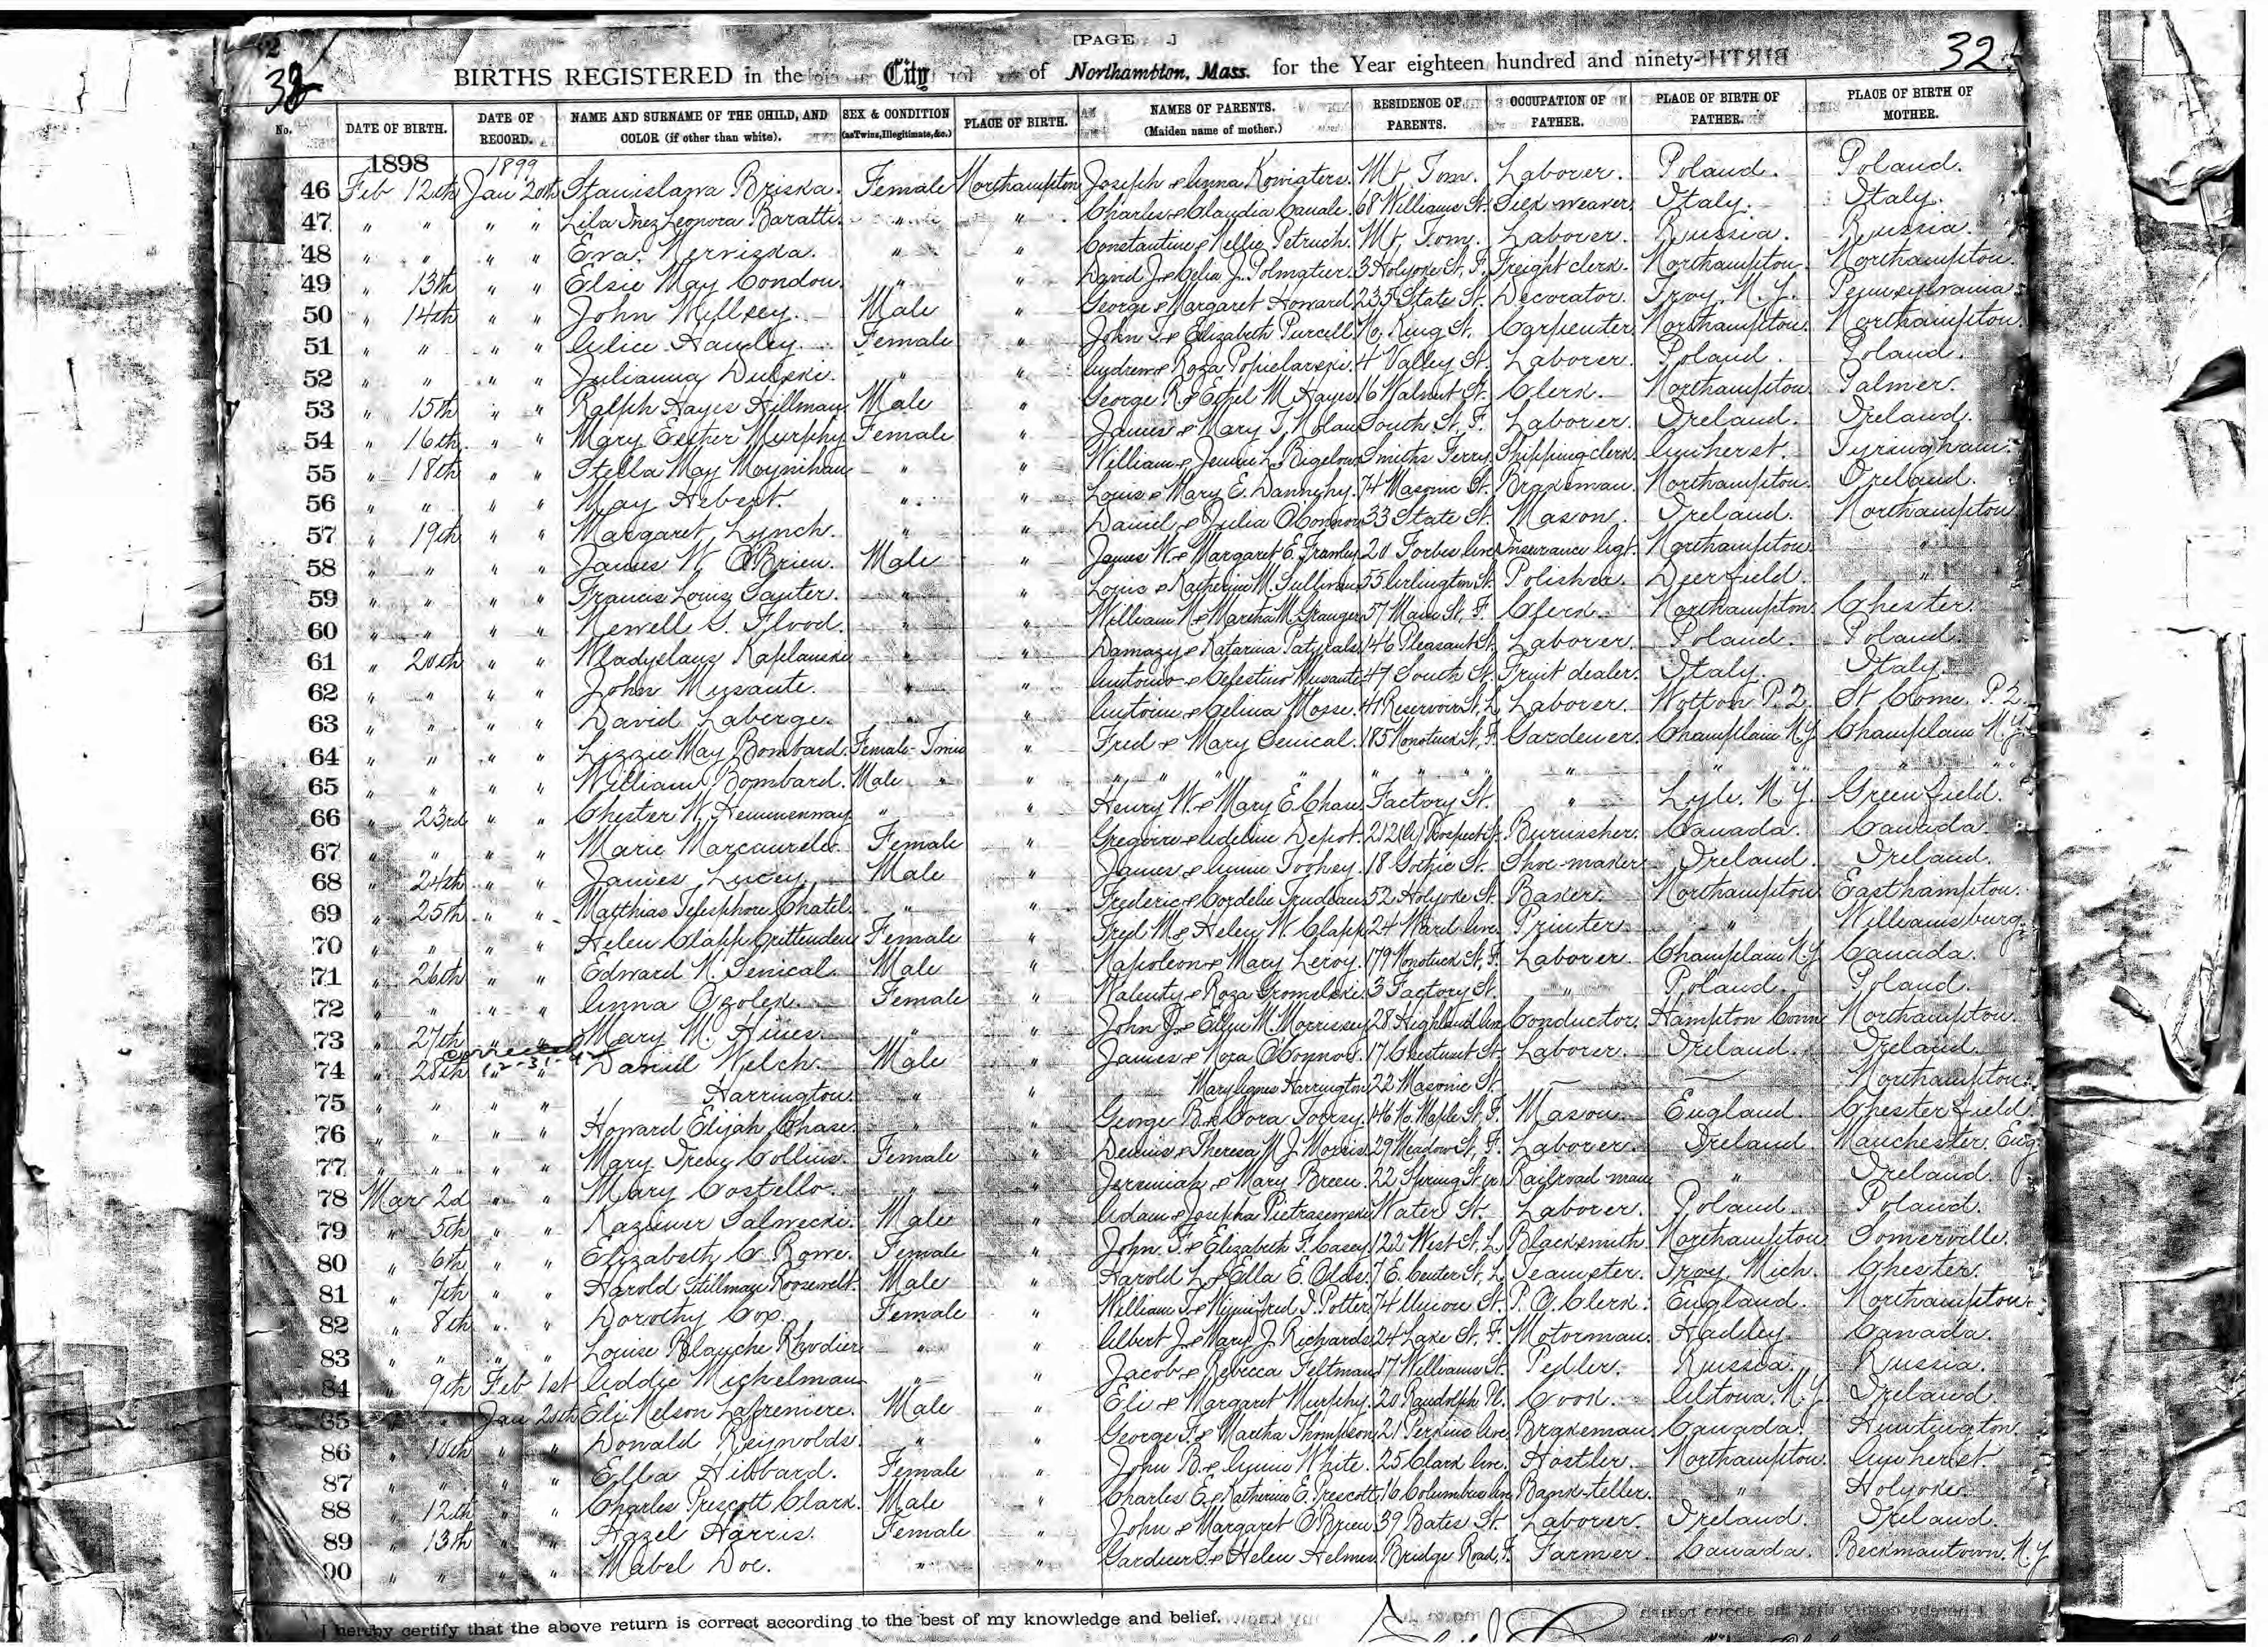 [PAGE ]
32
32
BIRTHS REGISTERED in the City of Northampton, Mass. for the Year eighteen hundred and ninety-
No. DATE OF BIRTH. DATE OF RECORD. NAME AND SURNAME OF THE CHILD, AND COLOR (if other than white). SEX & CONDITION (as Twins, Illegitimate, &c.) PLACE OF BIRTH. NAMES OF PARENTS. (Maiden name of mother.) RESIDENCE OF PARENTS. OCCUPATION OF FATHER. PLACE OF BIRTH OF FATHER. PLACE OF BIRTH OF MOTHER.
1898 1899
46 Feb 12th Jan 20th Stanislawa Briska. Female Northampton Joseph & Anna Kowiaters. Mt. Tom. Laborer. Poland. Poland.
47 " " " " Lila Inez Leonora Baratti. " " Charles & Claudia Canale. 68 Williams St. Silk weaver. Italy. Italy.
48 " " " " Eva Nerviska. " " Constantine & Nellie Petruch. Mt. Tom. Laborer. Russia. Russia.
49 " 13th " " Elsie May Condon. " " David J. & Celia J. Polmatier. 3 Holyoke St, F. Freight clerk. Northampton. Northampton.
50 " 14th " " John Willsey. Male " George & Margaret Howard 235 State St. Decorator. Troy. N.Y. Pennsylvania.
51 " " " " Alice Hawley. Female " John T. & Elizabeth Purcell. No. King St. Carpenter. Northampton. Northampton.
52 " " " " Julianna Dulski. " " Andrew & Roza Popielarski. 4 Valley St. Laborer. Poland. Poland.
53 " 15th " " Ralph Hayes Hillman. Male " George R. & Ethel M. Hayes. 16 Walnut St. Clerk. Northampton. Palmer.
54 " 16th " " Mary Esther Murphy Female " James & Mary T. Nolan South St, F. Laborer. Ireland. Ireland.
55 " 18th " " Stella May Moynihan " " William & Jennie L. Bigelow Smiths Ferry. Shipping clerk. Amherst. Tyringham.
56 " " " " May Hebert. " " Louis & Mary E. Dannehy. 74 Masonic St. Brakeman. Northampton. Ireland.
57 " 19th " " Margaret Lynch. " " Daniel & Julia O'Connor 33 State St. Mason. Ireland. Northampton
58 " " " " James W. O'Brien. Male " James W. & Margaret E. Frawley. 20 Forbes Ave. Insurance Agt. Northampton. "
59 " " " " Francis Louis Sauter. " " Louis & Katherine M. Sullivan 55 Arlington St. Polisher. Deerfield. "
60 " " " " Newell S. Flood. " " William N. & Martha M. Granger 57 Main St, F. Clerk. Northampton Chester.
61 " 20th " " Wladyslaus Kaplanski " " Damazy & Katarina 146 Pleasant St. Laborer. Poland. Poland.
62 " " " " John Musante. " " Antonio & Celestino Musante 47 South St. Fruit dealer. Italy. Italy.
63 " " " " David Laberge. " " Antoine & Celina Mosse. 41 Reservoir St, L. Laborer. Wotton P.Q. St Come. P.Q.
64 " " " " Lizzie May Bombard. Female-Twins " Fred & Mary Senical. 185 Nonotuck St, F. Gardener. Champlain N.Y. Champlain N.Y.
65 " " " " William Bombard. Male " " " " " " " " " " " " "
66 " 23rd " " Chester W. Hemmenway " " Henry W. & Mary E. Chase Factory St. " Lyle. N.Y. Greenfield.
67 " " " " Marie Marcaurele. Female " Gregoire & Adeline Depot. 212 (A) Prospect St. Burnisher. Canada. Canada.
68 " 24th " " James Lucey. Male " James & Annie Toohey. 18 Gothic St. Shoe-maker Ireland. Ireland.
69 " 25th " " Matthias Telesphore Chatel. " " Frederic & Cordelie Trudeau 52 Holyoke St. Baker. Northampton Easthampton.
70 " " " " Helen Clapp Crittenden Female " Fred M. & Helen W. Clapp 24 Ward Ave. Printer " Williamsburg.
71 " 26th " " Edward N. Senical. Male " Napoleon & Mary Leroy. 179 Nonotuck St, F. Laborer. Champlain N.Y. Canada.
72 " " " " Anna Ozolek. Female " Walenty & Roza Gromelski. 3 Factory St. " Poland. Poland.
73 " 27th " " Mary M. Hines. " " John J. & Ellen M. Morrissey 28 Highland Ave Conductor. Hampton Conn Northampton.
corrected
74 " 28th " " Daniel Welch. Male " James & Nora O'Connor. 17 Chestnut St. Laborer. Ireland. Ireland.
75 " " " " Harrington. " " Mary Agnes Harrington 22 Masonic St. — — Northampton.
76 " " " " Howard Elijah Chase. " " George B. & Cora Torrsy. 46 No. Maple St, F. Mason. England. Chesterfield.
77 " " " " Mary Irene Collins. Female " Dennis & Theresa M. J. Morris. 29 Meadow St, F. Laborer. Ireland. Manchester. Eng
78 Mar 2d " " Mary Costello. " " Jeremiah & Mary Breen. 22 Spring St. Railroad man " Ireland.
79 " 5th " " Kazimer Salwecki. Male " Adam & Josepha Pietrasewski Water St. Laborer. Poland. Poland.
80 " 6th " " Elizabeth C. Rowe. Female " John F. & Elizabeth F. Casey 122 West St, L. Blacksmith Northampton. Somerville.
81 " 7th " " Harold Stillman Roosevelt. Male " Harold L. & Ella E. Olds. 7 E. Center St, L. Teamster. Troy. Mich. Chester.
82 " 8th " " Dorothy Cox. Female " William T. & Winnifred I. Potter. 74 Union St. P.O. Clerk. England. Northampton.
83 " " " " Louise Blanche Rhodier " " Albert J. & Mary J. Richards 24 Lake St, F. Motorman. Hadley. Canada.
84 " 9th Feb 1st Addie Michelman " " Jacob & Rebecca Feltman 17 Williams St. Pedler. Russia. Russia.
85 " " Jan 20th Eli Nelson Lafreniere. Male " Eli & Margaret Murphy. 20 Randolph Pl. Cook. Altona. N.Y. Ireland.
86 " 10th " " Donald Reynolds. " " George F. & Martha Thompson 21 Perkins Ave. Brakeman Canada. Huntington.
87 " " " " Ella Hibbard. Female " John B. & Annie White. 25 Clark Ave. Hostler. Northampton. Amherst
88 " 12th " " Charles Prescott Clark. Male " Charles E. & Katherine E. Prescott. 16 Columbus Ave Bank-teller. " Holyoke.
89 " 13th " " Hazel Harris. Female " John & Margaret O'Brien 39 Bates St. Laborer. Ireland. Ireland.
90 " " " " Mabel Doe. " " Gardner S. & Helen Helms. Bridge Road, F. Farmer. Canada. Beekmantown. N.Y.
I hereby certify that the above return is correct according to the best of my knowledge and belief.